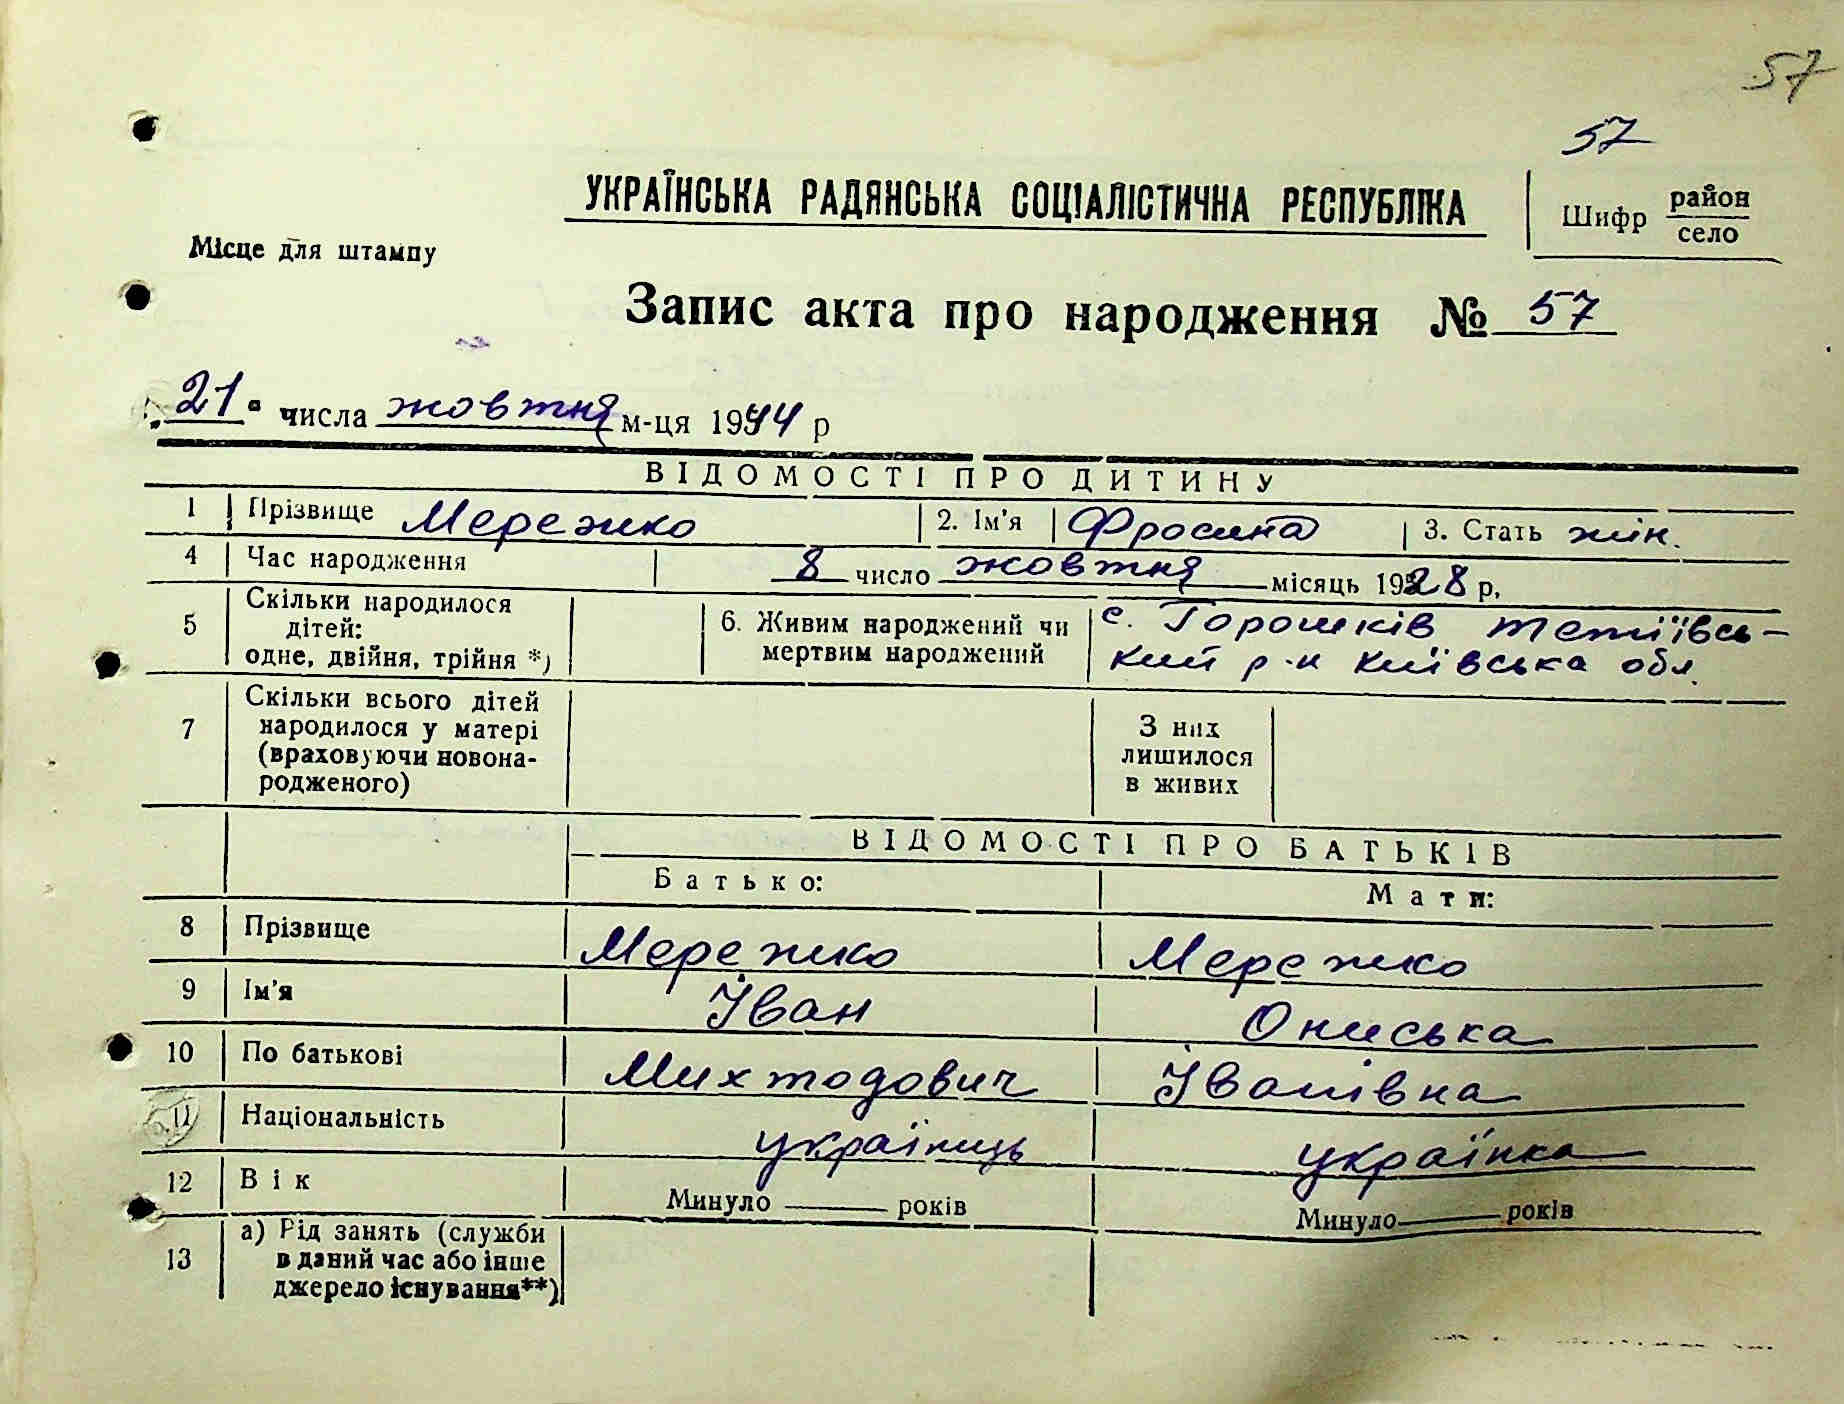 57
57
УКРАЇНСЬКА РАДЯНСЬКА СОЦІАЛІСТИЧНА РЕСПУБЛІКА
Шифр район
село
Місце для штампу
Запис акта про народження № 57
21 числа жовтня м-ця 1944 р
ВІДОМОСТІ ПРО ДИТИНУ
1 Прізвище Мережко 2. Ім'я Фросина 3. Стать жін.
4 Час народження 8 число жовтня місяць 1928 р.
5 Скільки народилося дітей: одне, двійня, трійня *)
6. Живим народжений чи мертвим народжений
с. Горошків тетіївсь-
кий р-н київська обл.
7 Скільки всього дітей народилося у матері (враховуючи новона-родженого)
З них лишилося в живих
ВІДОМОСТІ ПРО БАТЬКІВ
Батько: Мати:
8 Прізвище Мережко Мережко
9 Ім'я Іван Ониська
10 По батькові Михтодович Іванівна
11 Національність українць українка
12 Вік Минуло років Минуло років
13 а) Рід занять (служби
в даний час або інше
джерело існування**)